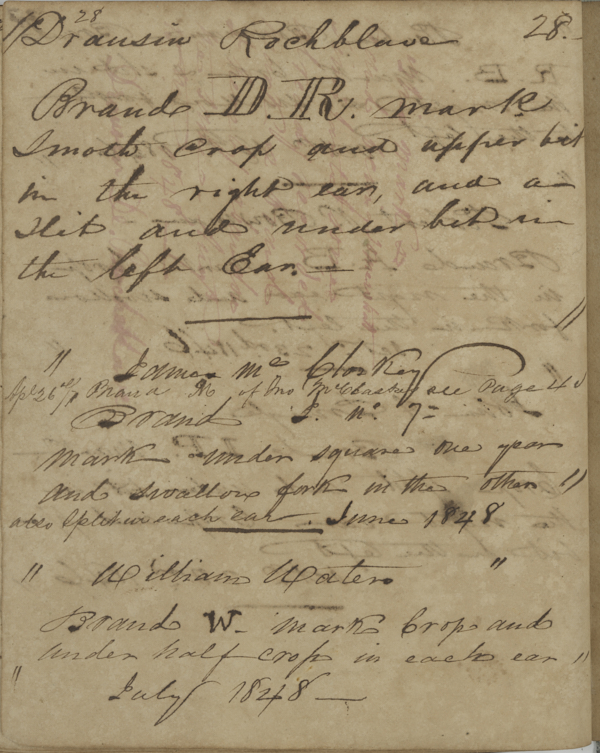 28
Drausin Rochblave 28.
Brand D. R. mark
Smoth crop and upper bit
in the right ear, and a
slit and under bit in
the left Ear.
" James Mc Closkey
26 Brand of Jno McCloskey see Page 40
Brand J. Mc 7
mark under square one year
and swallow fork in the other "
also Split in each ear. June 1848
" William Waters "
Brand W. mark Crop and
under half crop in each ear "
" July 1848